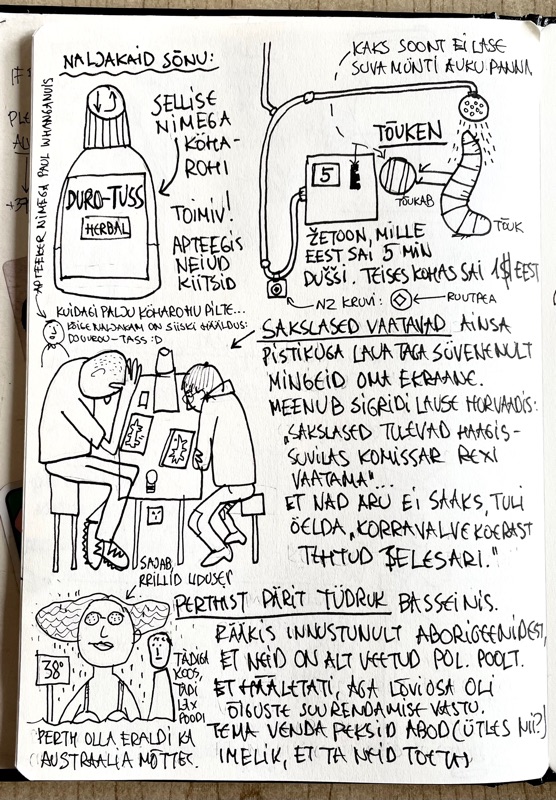 NALJAKAID SÕNU:
SELLISE
NIMEGA
KÖHA-
ROHI
DURO-TUSS
HERBAL
TOIMIV!
APTEEGIS
NEIUD
KIITSID
APTEEKER NIMEGA PAUL WHANGANUIS
KUIDAGI PALJU KÖHAROHU PILTE...
KÕIGE NALJAKAM ON SIISKI HÄÄLDUS:
DJUUROU-TASS :D
KAKS SOONT EI LASE
SUVA MÜNTI AUKU PANNA
TÕUKEN
5
TÕUKAB
TÕUK
ŽETOON, MILLE
EEST SAI 5 MIN
DUŠŠI. TEISES KOHAS SAI 1$ EEST
NZ KRUVI:
RUUTPEA
SAKSLASED VAATAVAD AINSA
PISTIKUGA LAUA TAGA SÜVENENULT
MINGEID OMA EKRAANE.
MEENUB SIGRIDI LAUSE HORVAADIS:
"SAKSLASED TULEVAD HAAGIS-
SUVILAS KOMISSAR REXI
VAATAMA"...
ET NAD ARU EI SAAKS, TULI
ÖELDA "KORRAVALVEKOERAST
TEHTUD SELESARI."
SAJAB,
PRILLID UDUSED
PERTHIST PÄRIT TÜDRUK BASSEINIS.
RÄÄKIS INNUSTUNULT ABORIGEENIDEST,
ET NEID ON ALT VEETUD POL. POOLT.
ET HÄÄLETATI, AGA LÕVIOSA OLI
ÕIGUSTE SUURENDAMISE VASTU.
TEMA VENDA PEKSID ABOD (ÜTLES NII?)
IMELIK, ET TA NEID TOETAS
38°
TÄDIGA
KOOS,
TÄDI
LÄX
POODI
PERTH OLLA ERALDI KA
AUSTRAALIA MÕTTES.